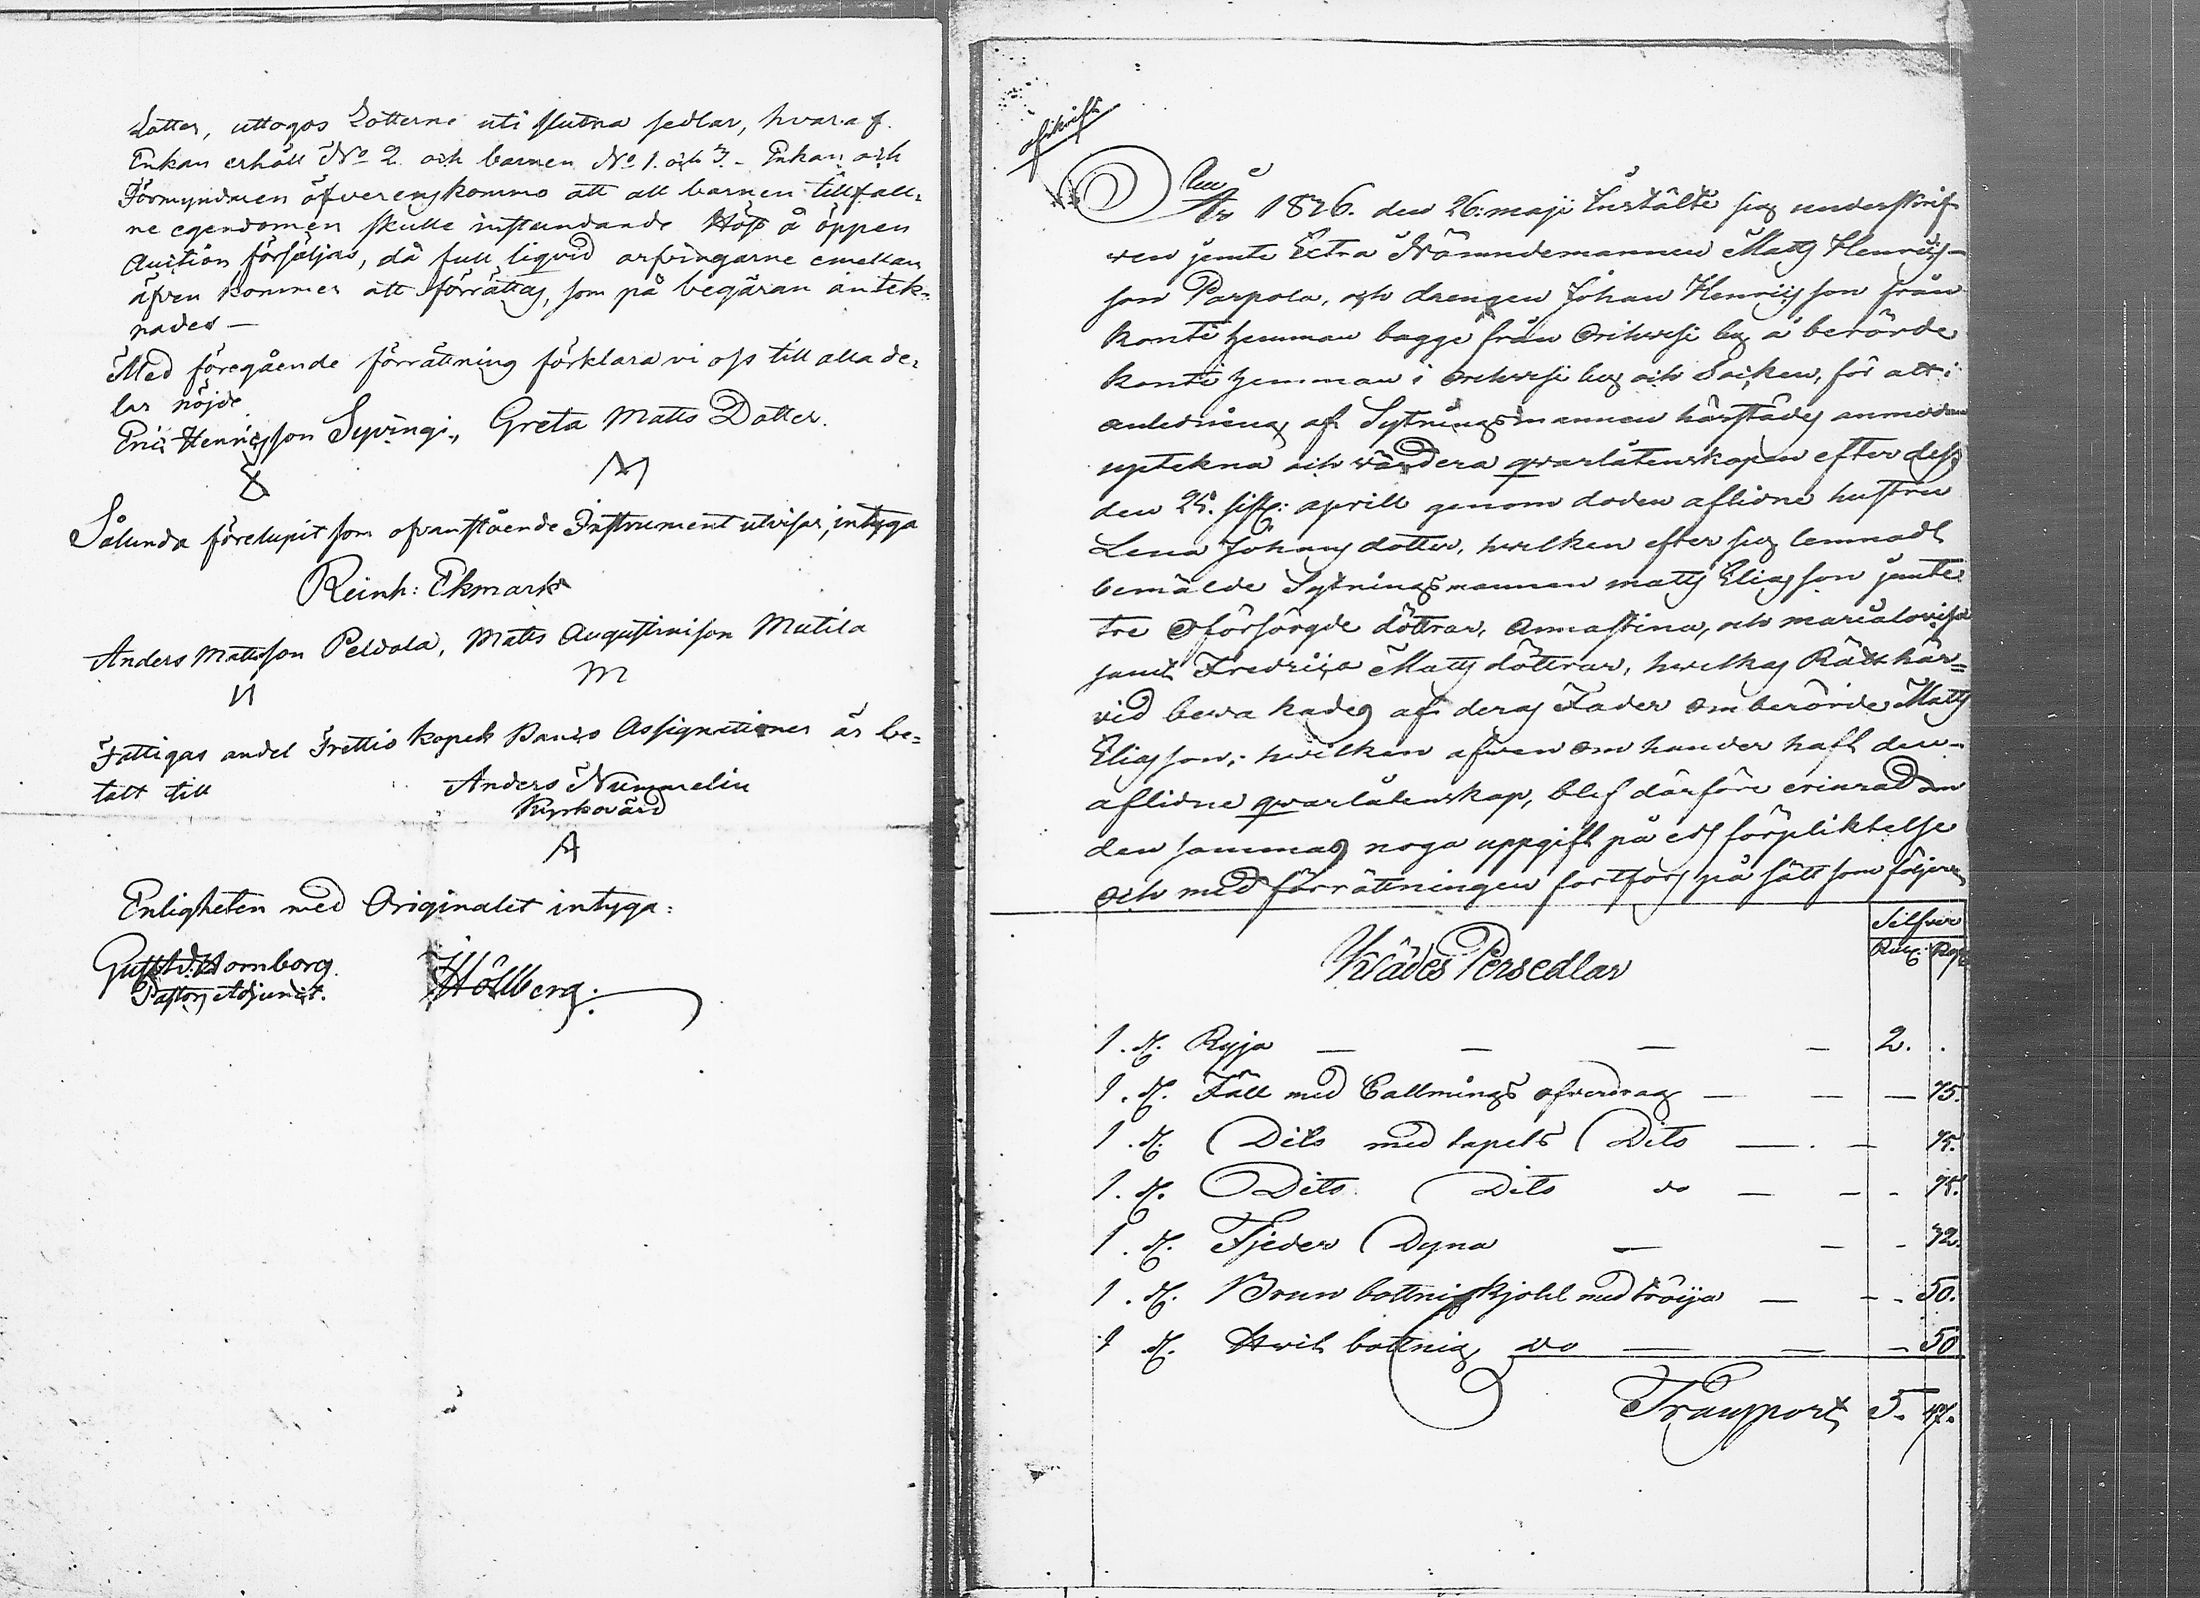 Lotter, uttogos Lotterne uti slutna sedlar, hvaraf
Enkan erhöll No 2 och barnen No 1. och 3. - Enkan och
Förmyndaren öfverenskommo att all barnen tillfall-
ne egendomen skulle instundande Höst å öppen
Auction försäljas, då full liqvid arfvingarne emellan
äfven kommer att förrättas, som på begäran antek-
nades —
Med föregående förrättning förklara vi oss till alla de-
lar nöjde
Eric Henricsson Syvingi., Greta Matts Dotter.
Sålunda förelupit som ofvanstående Instrument utvisar, intyga
Reinh: Ekmark
Anders Mattsson Peldola, Matts Augustinison Mutila
M
Fattigas andel Trettio kopek Banco Assignationer är be-
talt till
Anders Nummelin
Kyrkovärd
A
Enligheten med Originalet intyga:
Gust: d: Homborg. Höllberg.
Pastors Adjunct.
Afskrift
År 1826. den 26: maji Instälte sig underskrif-
ven jemte Extra Nämndemannen Matts Henrics-
son Parpola, och drengen Johan Henricsson från
Konti hemman bagge från Orihvesi by å berörde
Konti hemman i Orihvesi by och Socken, för att i
anledning af Sytningsmannen härstädes anmodan
uptekna och värdera qvarlåtenskapen efter dess
den 25. sistl: aprill genom döden aflidne hustru
Lena Johans dotter, hvilken efter sig lemnadt
bemälde Sytningsmannen Matts Eliasson jemte
tre oförsörgde döttrar, Annastina, och Marialovisa
samt Fredrica Matts döttrar, hvilkas Rätt här-
vid bevakades af deras Fader omberörde Matts
Eliasson, hvilken äfven om hander haft den
aflidne qvarlåtenskap, blef därföre erinrad om
den sammas noga uppgift på eds förpliktelse
och med förrättningen fortfors på sätt som följer
Silfver
Klädes Persedlar Rub: Kop
1. st. Ryja — — — — 2. .
1. st. Fäll med Callmings öfverdrag — — — 75.
1. st. Dito med tapets Dito — . — 75.
1. st. Dito Dito do — — - 75.
1. st. Fjeder Dyna — — - 72.
1. st. Brun bottnig kjohl med tröija — - - 50.
1 st. Hvit bottnig do — — - 50
Transport 5. 47.